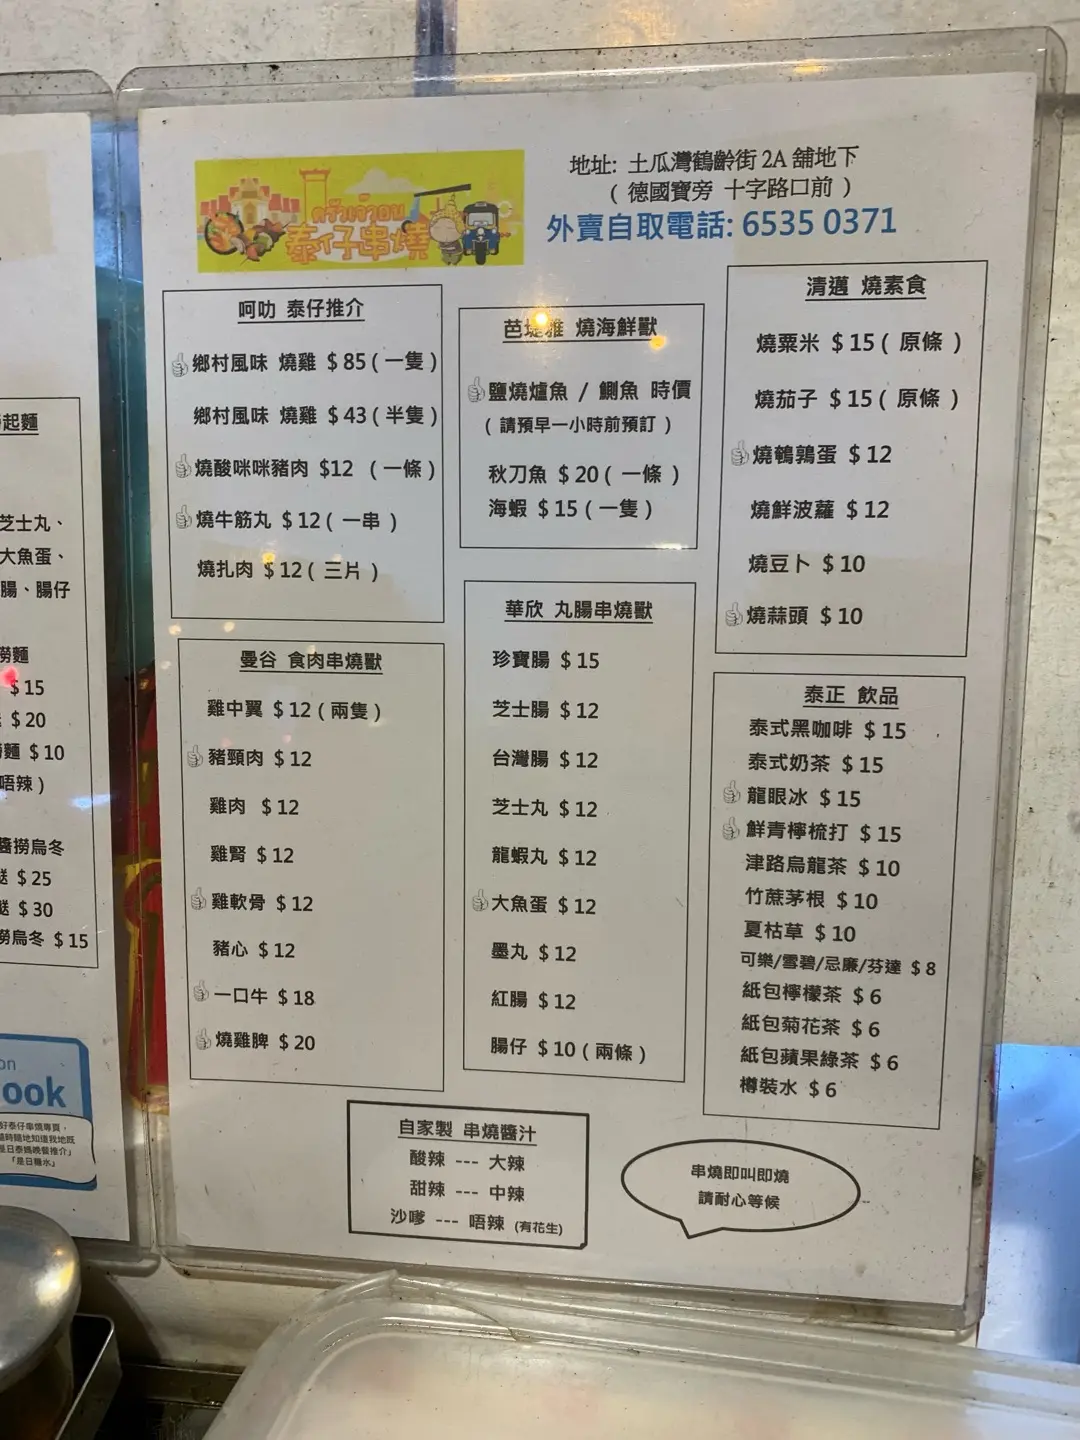 起麵
芝士丸、
大魚蛋、
腸、腸仔
撈麵
$15
$20
麵 $10
唔辣)
醬撈烏冬
餸 $25
餸 $30
撈烏冬 $15
on
ook
好泰仔串燒專頁，
隨時隨地知道我地既
是日泰媽晚餐推介」
「是日糖水」
ครัวเจ้าอน
泰仔串燒
地址: 土瓜灣鶴齡街 2A 舖地下
( 德國寶旁 十字路口前 )
外賣自取電話: 6535 0371
呵叻 泰仔推介
鄉村風味 燒雞 $85(一隻)
鄉村風味 燒雞 $43(半隻)
燒酸咪咪豬肉 $12 (一條)
燒牛筋丸 $12(一串)
燒扎肉 $12(三片)
曼谷 食肉串燒獸
雞中翼 $12(兩隻)
豬頸肉 $12
雞肉 $12
雞腎 $12
雞軟骨 $12
豬心 $12
一口牛 $18
燒雞脾 $20
芭堤雅 燒海鮮獸
鹽燒爐魚 / 鰂魚 時價
(請預早一小時前預訂)
秋刀魚 $20(一條)
海蝦 $15(一隻)
華欣 丸腸串燒獸
珍寶腸 $15
芝士腸 $12
台灣腸 $12
芝士丸 $12
龍蝦丸 $12
大魚蛋 $12
墨丸 $12
紅腸 $12
腸仔 $10(兩條)
清邁 燒素食
燒粟米 $15(原條)
燒茄子 $15(原條)
燒鵪鶉蛋 $12
燒鮮波蘿 $12
燒豆卜 $10
燒蒜頭 $10
泰正 飲品
泰式黑咖啡 $15
泰式奶茶 $15
龍眼冰 $15
鮮青檸梳打 $15
津路烏龍茶 $10
竹蔗茅根 $10
夏枯草 $10
可樂/雪碧/忌廉/芬達 $8
紙包檸檬茶 $6
紙包菊花茶 $6
紙包蘋果綠茶 $6
樽裝水 $6
自家製 串燒醬汁
酸辣 --- 大辣
甜辣 --- 中辣
沙嗲 --- 唔辣 (有花生)
串燒即叫即燒
請耐心等候